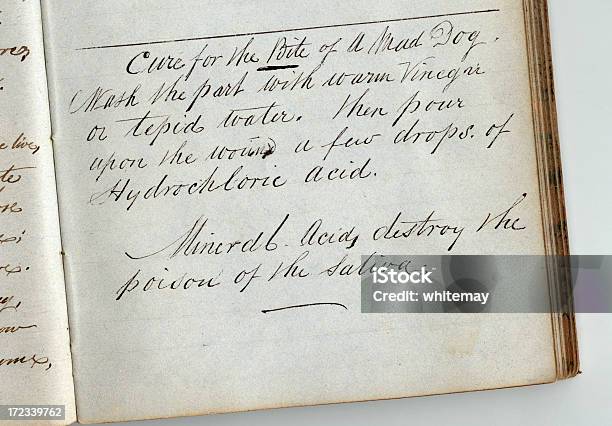 Cure for the Bite of A Mad Dog.
Wash the part with warm Vinegar
or tepid water. then pour
upon the wound a few drops. of
Hydrochloric Acid.
Mineral Acids destroy the
poison of the Saliva.
iStock
Credit: whitemay
172339762